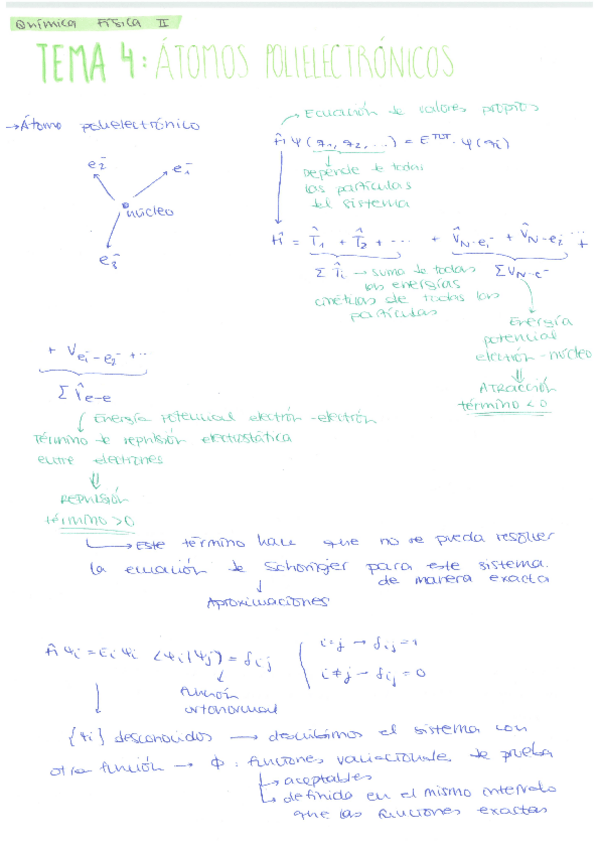 Química Física II
TEMA 4: ÁTOMOS POLIELECTRÓNICOS
→ Átomo polielectrónico
e₂⁻
e₁⁻
núcleo
e₃⁻
→ Ecuación de valores propios
Ĥ Ψ (q₁, q₂, ...) = E^TOT · Ψ(qi)
Depende de todas
las partículas
del sistema
Ĥ = T̂₁ + T̂₂ + ... + V̂N-e₁⁻ + V̂N-e₂⁻ ... +
Σ T̂i → suma de todas
las energías
cinéticas de todas las
partículas
ΣVN-e⁻
Energía
potencial
electrón-núcleo
⇓
ATRACCIÓN
término < 0
+ Ve₁⁻-e₂⁻ + ...
Σ V̂e-e
Energía potencial electrón-electrón
Término de repulsión electrostática
entre electrones
⇓
REPULSIÓN
término > 0
→ Este término hace que no se pueda resolver
la ecuación de Schoringer para este sistema.
de manera exacta
↓
Aproximaciones
Ĥ Ψi = Ei Ψi <Ψi|Ψj> = δij
i=j → δij = 1
i≠j → δij = 0
función
ortonormal
{Ψi} desconocidos → describimos el sistema con
otra función → Φ: funciones variacionales de prueba
↳ aceptables
↳ definida en el mismo intervalo
que las funciones exactas